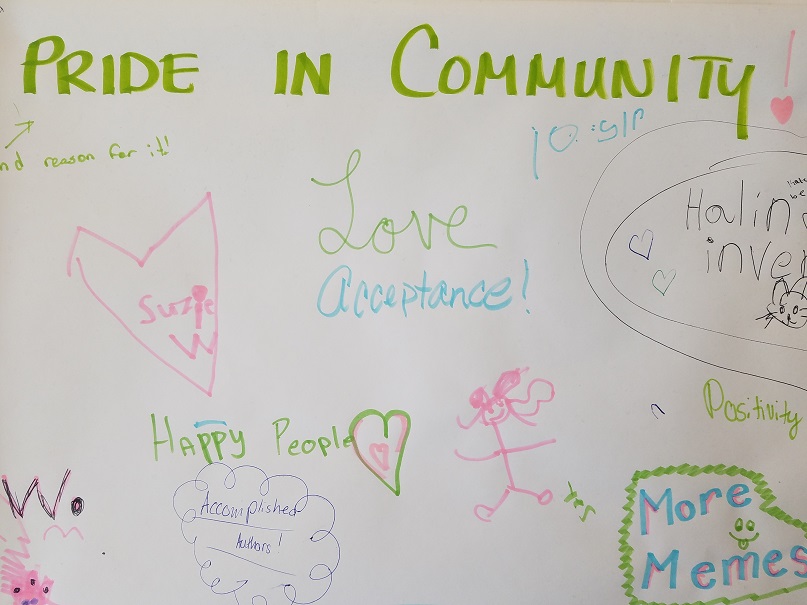 PRIDE IN COMMUNITY!
nd reason for it!
Love
Acceptance!
Suzie
W
Halin
inver
Positivity
Happy People
yes
W.
Accomplished
Authors!
More
Memes